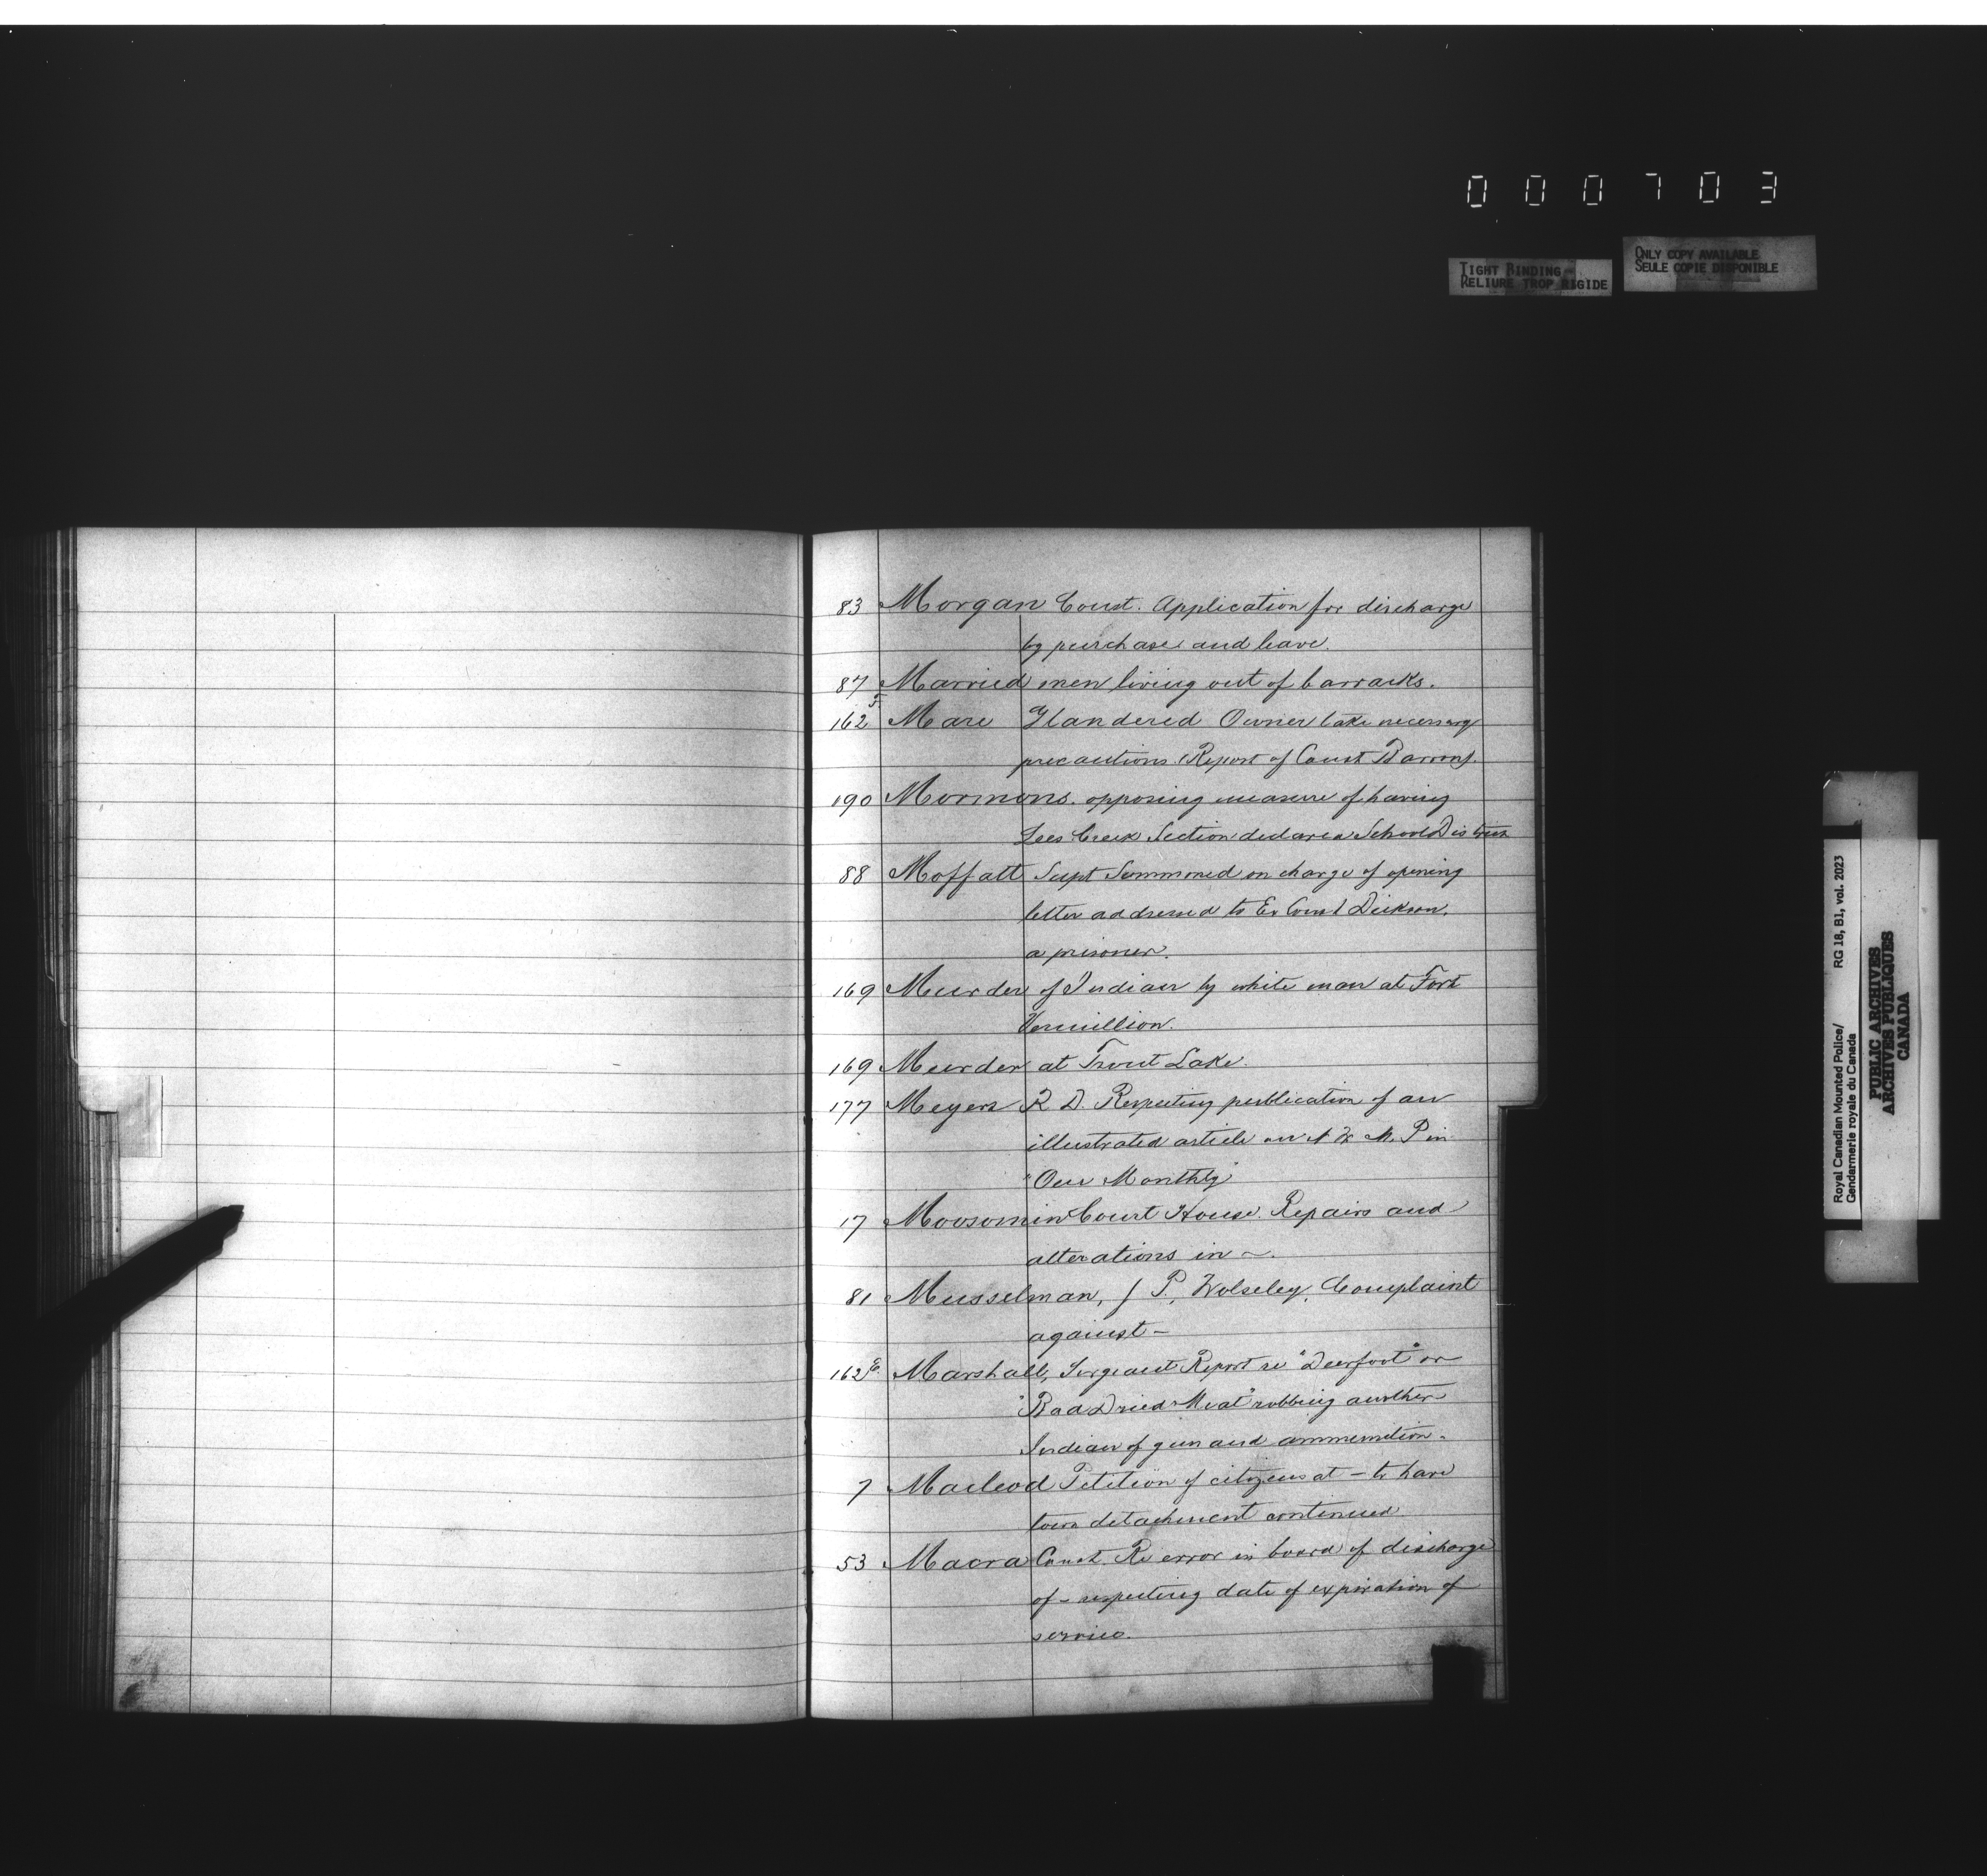 000703
TIGHT BINDING
RELIURE TROP RIGIDE
ONLY COPY AVAILABLE
SEULE COPIE DISPONIBLE
83 Morgan Const. Application for discharge
by purchase and leave.
87 Married men living out of barracks.
162 F Mare Glandered Owner take necessary
precautions (Report of Const Barron).
190 Mormons. opposing measure of having
Lees Creek Section declared School District
88 Moffatt Supt Summoned on charge of opening
letter addressed to Ex Const Dickson,
a prisoner.
169 Murder of Indian by white man at Fort
Vermillion.
169 Murder at Trout Lake.
177 Meyers R. D. Respecting publication of an
illustrated article on N. W. M. P in
"Our Monthly"
17 Moosomin Court House. Repairs and
alterations in —.
81 Musselman, J P, Wolseley, Complaint
against —
162 E. Marshall, Sergeant Report re "Deerfoot" or
"Bad Dried Meat" robbing another
Indian of gun and ammunition.
7 Macleod Petition of citizens at — to have
town detachment continued.
53 Macra Const. Re error in board of discharge
of — respecting date of expiration of
service.
Royal Canadian Mounted Police/ RG 18, B1, vol. 2023
Gendarmerie royale du Canada
PUBLIC ARCHIVES
ARCHIVES PUBLIQUES
CANADA